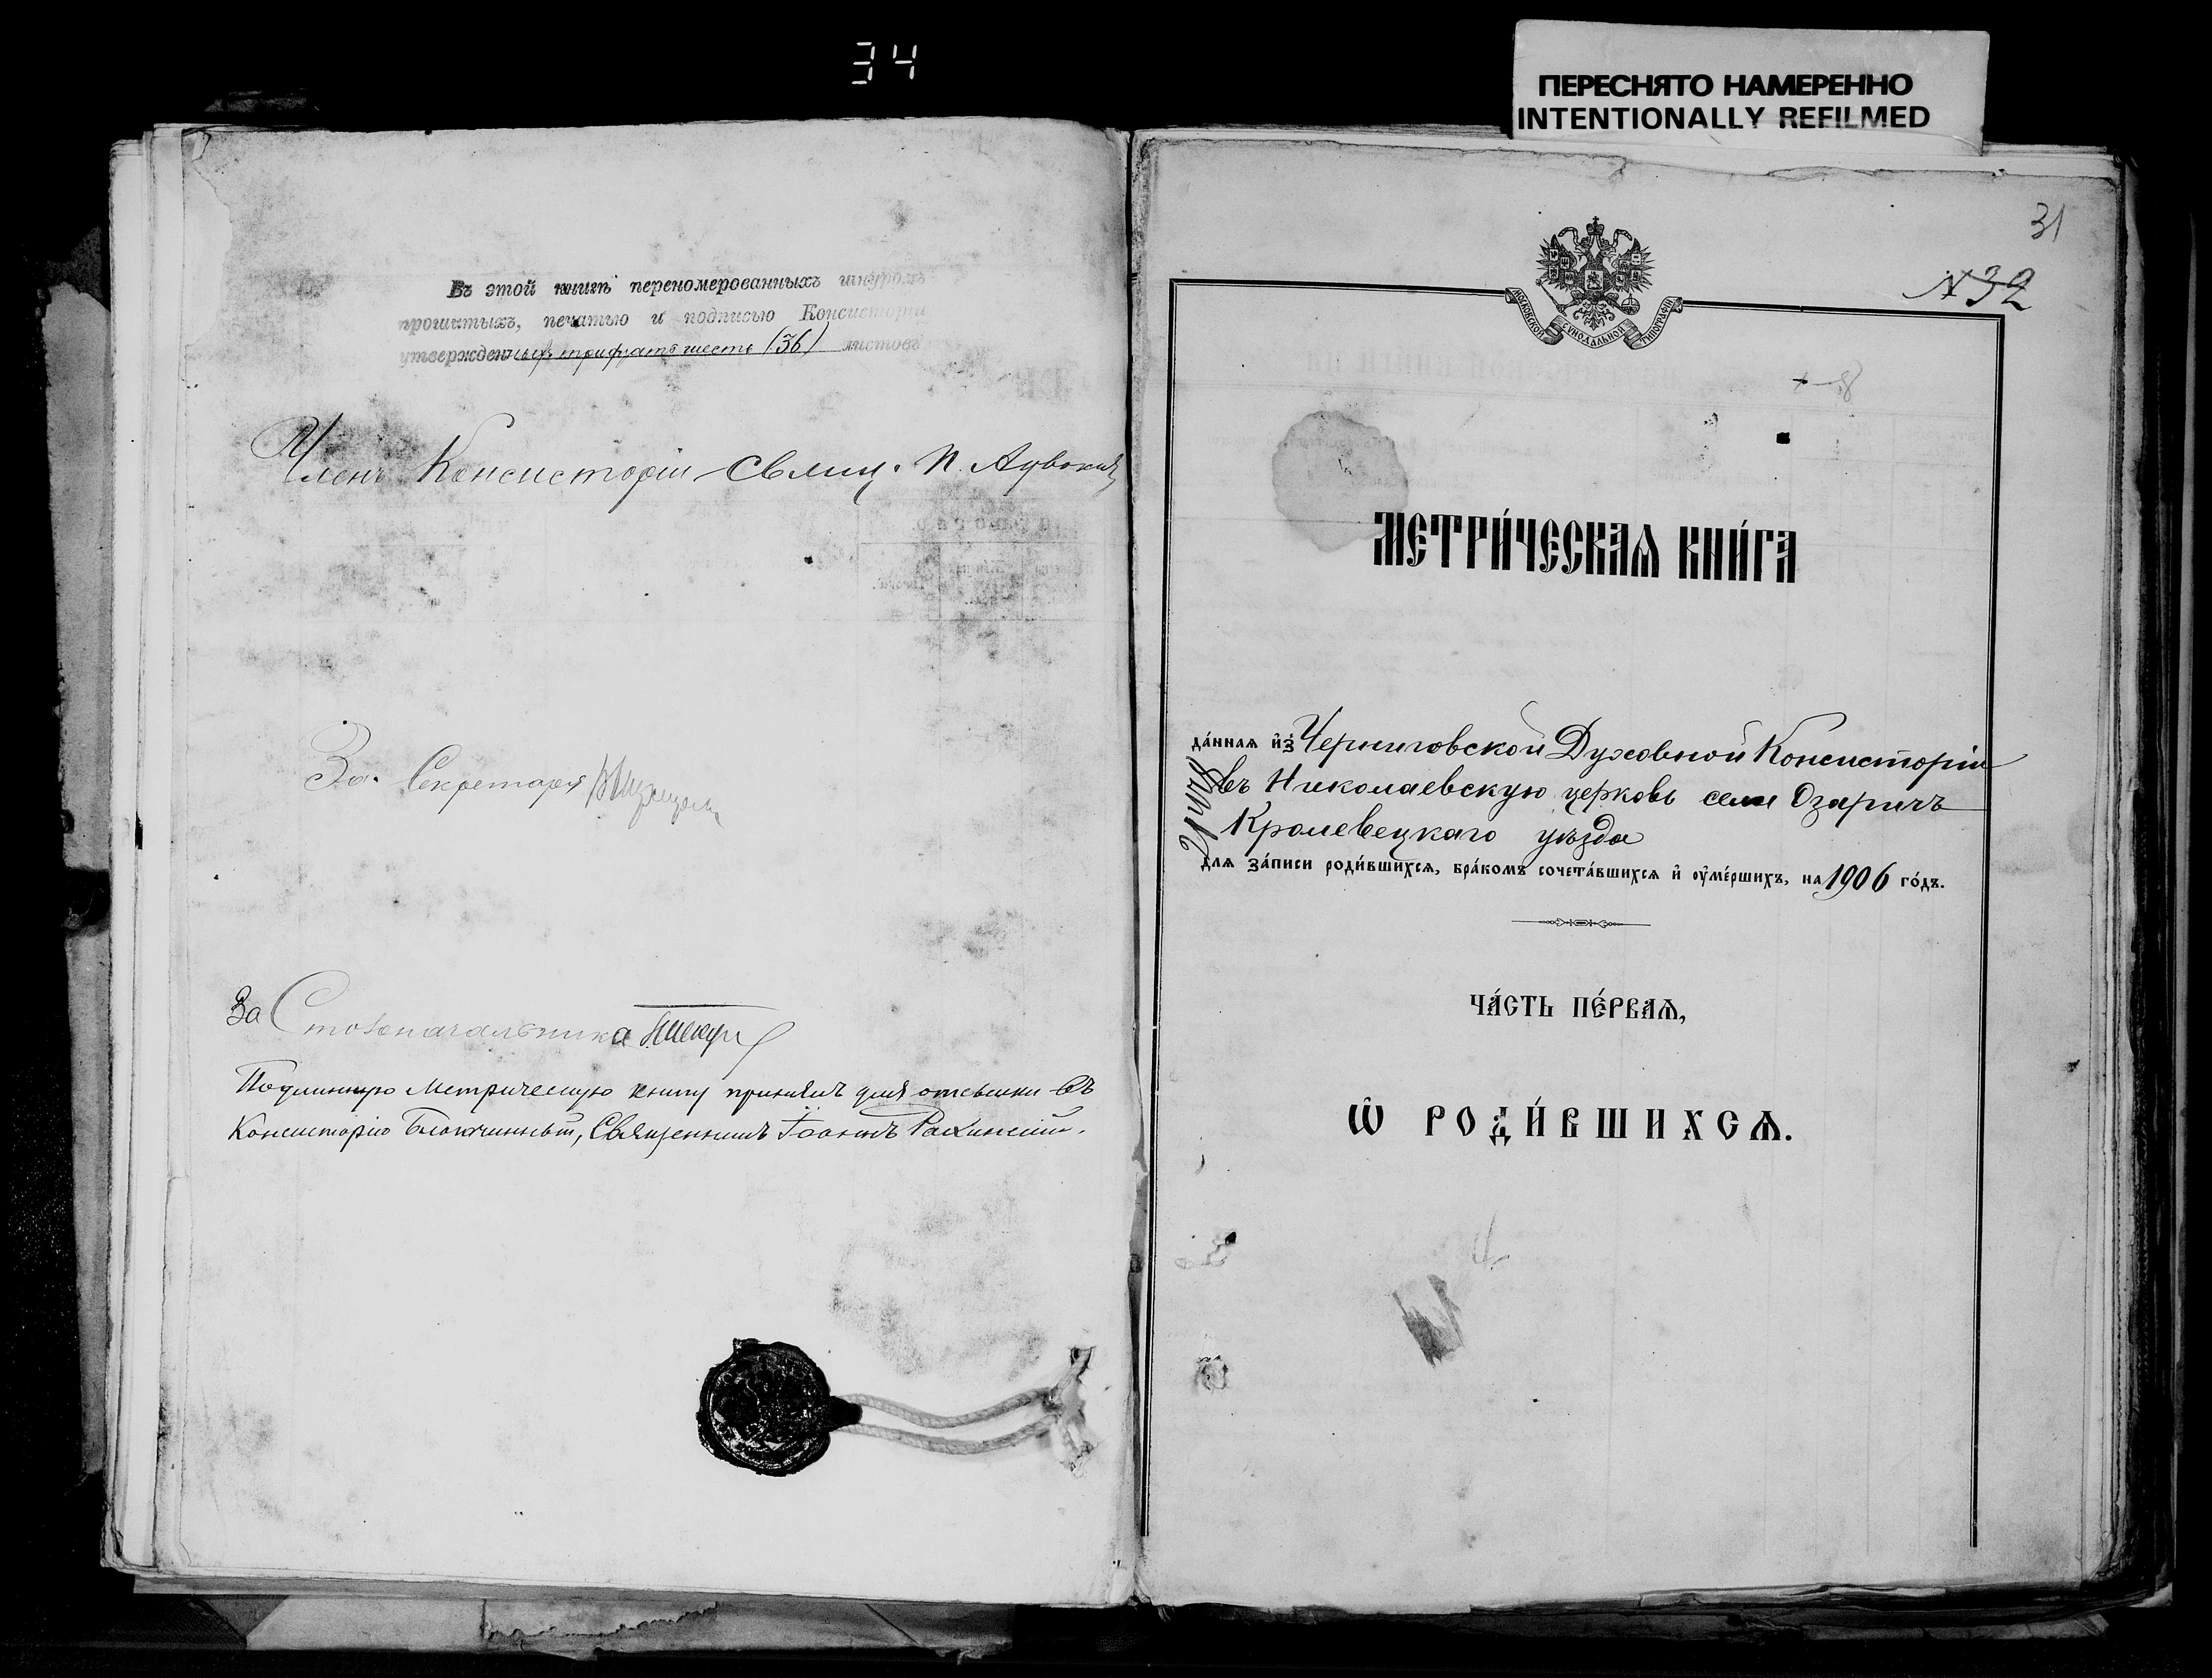 34
ПЕРЕСНЯТО НАМЕРЕННО
INTENTIONALLY REFILMED
Въ этой книгѣ переномерованныхъ шнуромъ
прошитыхъ, печатью и подписью Консисторіи
утвержденныхъ тридцать шесть (36) листовъ
Членъ Консисторіи Свящ. П.
За Секретаря
За Столоначальника
Подлинную метрическую книгу принялъ для отсылки въ
Консисторію Благочинный, Священникъ Іоаннъ
31
№ 32
МОСКОВСКОЙ СѴНОДАЛЬНОЙ ТИПОГРАФІИ
МЕТРИ́ЧЕСКАѦ КНИ́ГА
да́ннаѧ и҆з̾ Черниговской Духовной Консисторіи
въ Николаевскую церковь села Озаричъ
Кролевецкаго уѣзда
длѧ за́писи роди́вшихсѧ, бра́комъ сочета́вшихсѧ и҆ ᲂу҆ме́ршихъ, на 1906 го́дъ.
ЧА́СТЬ ПЕ́РВАѦ,
Ѡ҆ РОДИ́ВШИХСѦ.